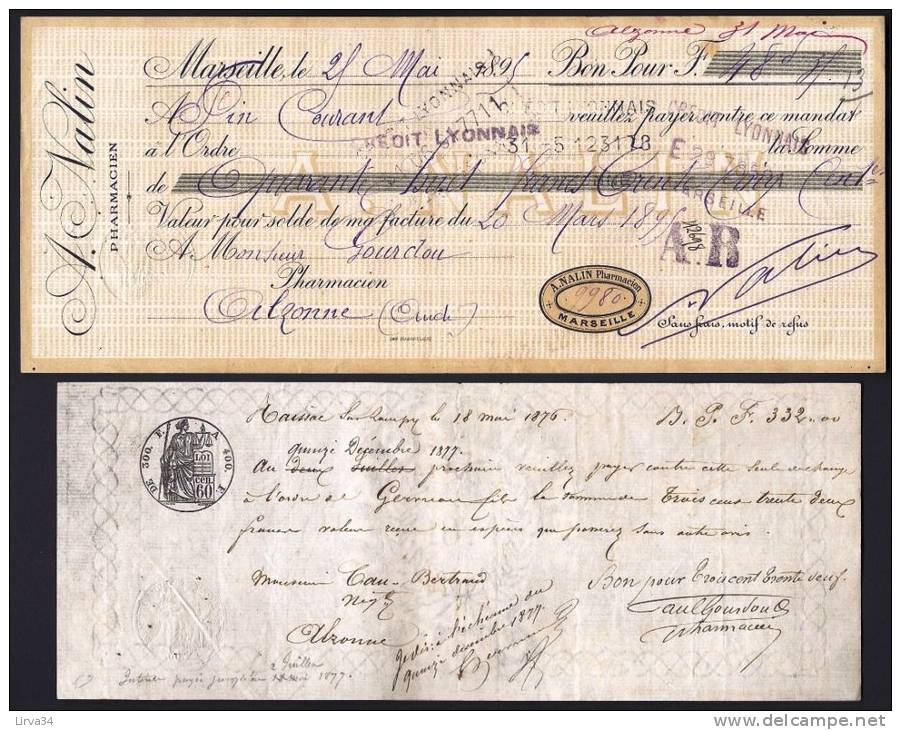 Alzonne 31 Mai
A. Nalin
PHARMACIEN
Marseille, le 25 Mai 1895 Bon Pour F. 48 35
A Fin Courant veuillez payer contre ce mandat
CREDIT LYONNAIS
CREDIT LYONNAIS
31-5 123178
MARSEILLE
à l'Ordre la Somme
de Quarante huit francs trente cinq Cent.
A. NALIN
Valeur pour solde de ma facture du 20 Mars 1895
12648
A.B
A Monsieur Gourdou
Pharmacien
Alzonne (Aude)
A. NALIN Pharmacien
9980
MARSEILLE
Nalin
Sans frais, motif de refus
Raissac Sur Lampy le 18 mai 1876 B. P. F. 332.00
quinze Décembre 1877.
Au deux Juillet prochain veuillez payer contre cette seule de change
à l'ordre de Germain fils la somme de Trois cent trente deux
francs valeur reçue en espèces que passerez sans autre avis.
DE 300. F. A 400. F.
LOI
cen.
60
Monsieur Cau-Bertrand
Négt
Alzonne
Bon pour Trois cent Trente deux f.
Paul Gourdou
Pharmacien
quinze décembre 1877
2 Juillet
Interêts payés jusqu'au 18 mai 1877.
Lirva34 www.delcampe.net